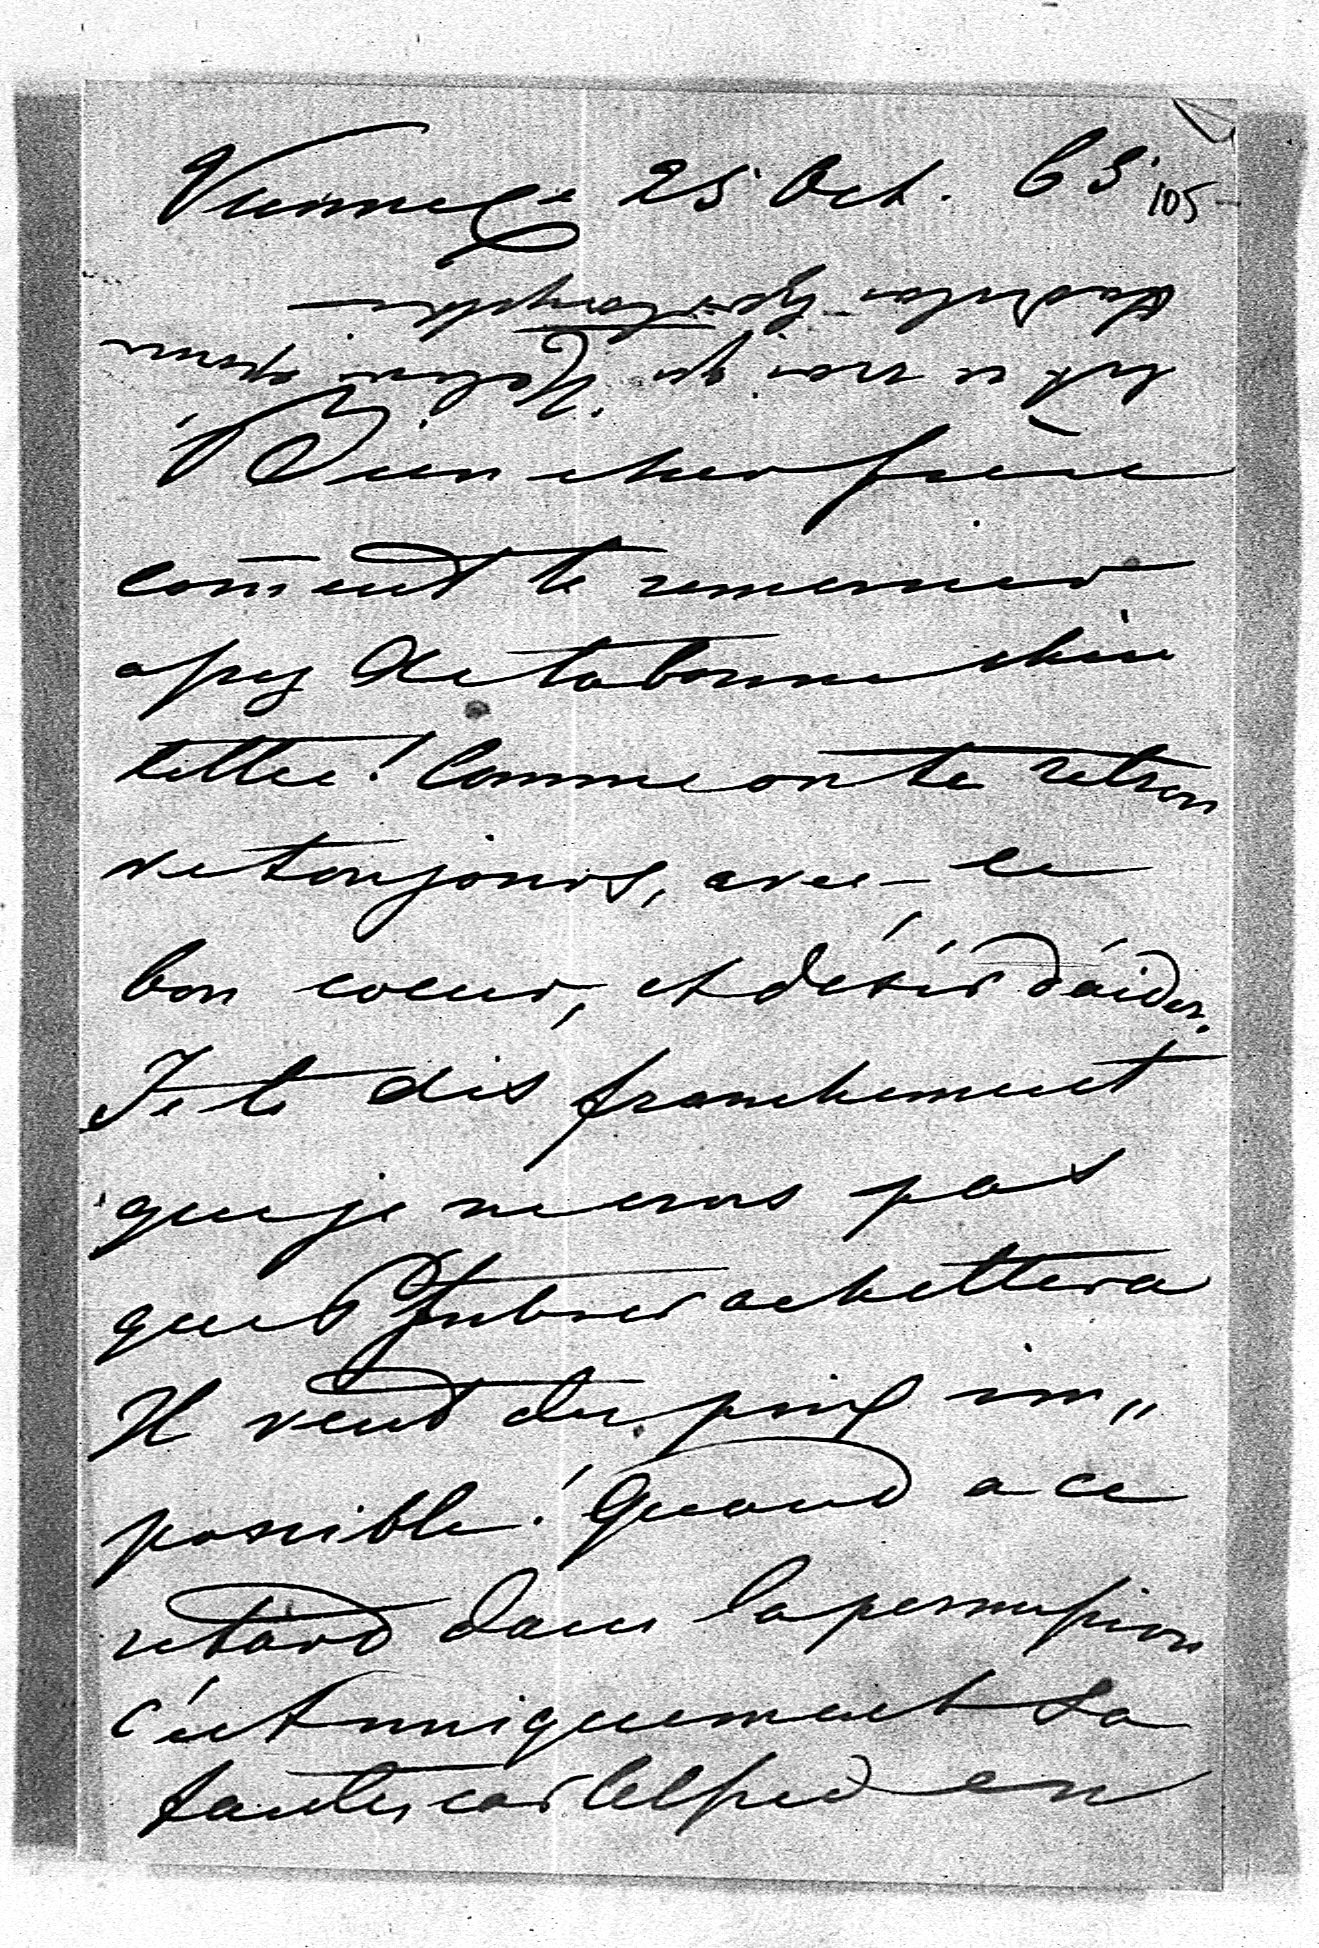 Vienne le 25 Oct. 65
105
Est ce vrai qu'
Bien cher frère
com̄ent te remercier
assez de ta bonne chère
lettre! Comme on te retrou
ve toujours, avec le
bon coeur, et désir d'aider.
Je te dis franchement
que je ne crois pas
que achettera
Il veut du prix im„
possible! Quand a ce
retard dans la permission
c'est uniquement sa
faute, car Alfred en